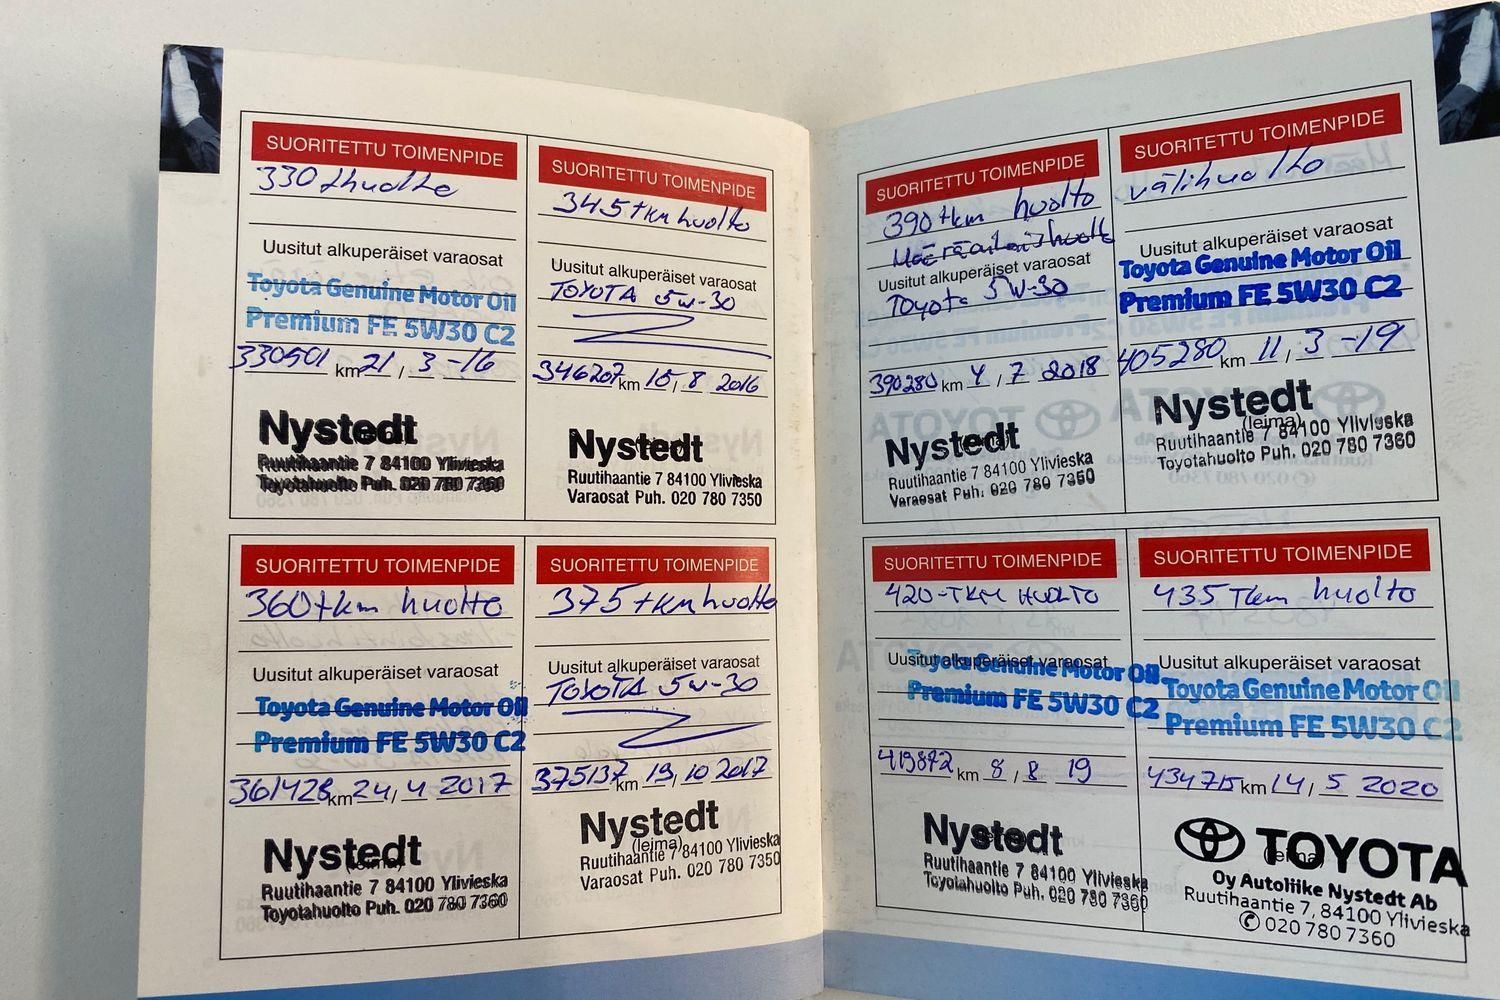 SUORITETTU TOIMENPIDE
330 thuolto
Uusitut alkuperäiset varaosat
Toyota Genuine Motor Oil
Premium FE 5W30 C2
330501 km 21 / 3 -16
Nystedt
Ruutihaantie 7 84100 Ylivieska
Toyotahuolto Puh. 020 780 7360
SUORITETTU TOIMENPIDE
345 tkm huolto
Uusitut alkuperäiset varaosat
TOYOTA 5W-30
346207 km 15 / 8 2016
Nystedt
Ruutihaantie 7 84100 Ylivieska
Varaosat Puh. 020 780 7350
SUORITETTU TOIMENPIDE
360 tkm huolto
Uusitut alkuperäiset varaosat
Toyota Genuine Motor Oil
Premium FE 5W30 C2
361428 km 24 / 4 2017
Nystedt
(leima)
Ruutihaantie 7 84100 Ylivieska
Toyotahuolto Puh. 020 780 7360
SUORITETTU TOIMENPIDE
375 tkm huolto
Uusitut alkuperäiset varaosat
TOYOTA 5W-30
375137 km 19 / 10 2017
Nystedt
(leima)
Ruutihaantie 7 84100 Ylivieska
Varaosat Puh. 020 780 7350
SUORITETTU TOIMENPIDE
390 tkm huolto
Uusitut alkuperäiset varaosat
Toyota 5W-30
390280 km 4 / 7 2018
Nystedt
(leima)
Ruutihaantie 7 84100 Ylivieska
Varaosat Puh. 020 780 7350
SUORITETTU TOIMENPIDE
välihuolto
Uusitut alkuperäiset varaosat
Toyota Genuine Motor Oil
Premium FE 5W30 C2
405280 km 11 / 3 -19
Nystedt
(leima)
Ruutihaantie 7 84100 Ylivieska
Toyotahuolto Puh. 020 780 7360
SUORITETTU TOIMENPIDE
420-TKM HUOLTO
Uusitut alkuperäiset varaosat
Toyota Genuine Motor Oil
Premium FE 5W30 C2
419872 km 8 / 8 19
Nystedt
Ruutihaantie 7 84100 Ylivieska
Toyotahuolto Puh. 020 780 7360
SUORITETTU TOIMENPIDE
435 Tkm huolto
Uusitut alkuperäiset varaosat
Toyota Genuine Motor Oil
Premium FE 5W30 C2
434715 km 14 / 5 2020
TOYOTA
(leima)
Oy Autoliike Nystedt Ab
Ruutihaantie 7, 84100 Ylivieska
020 780 7360